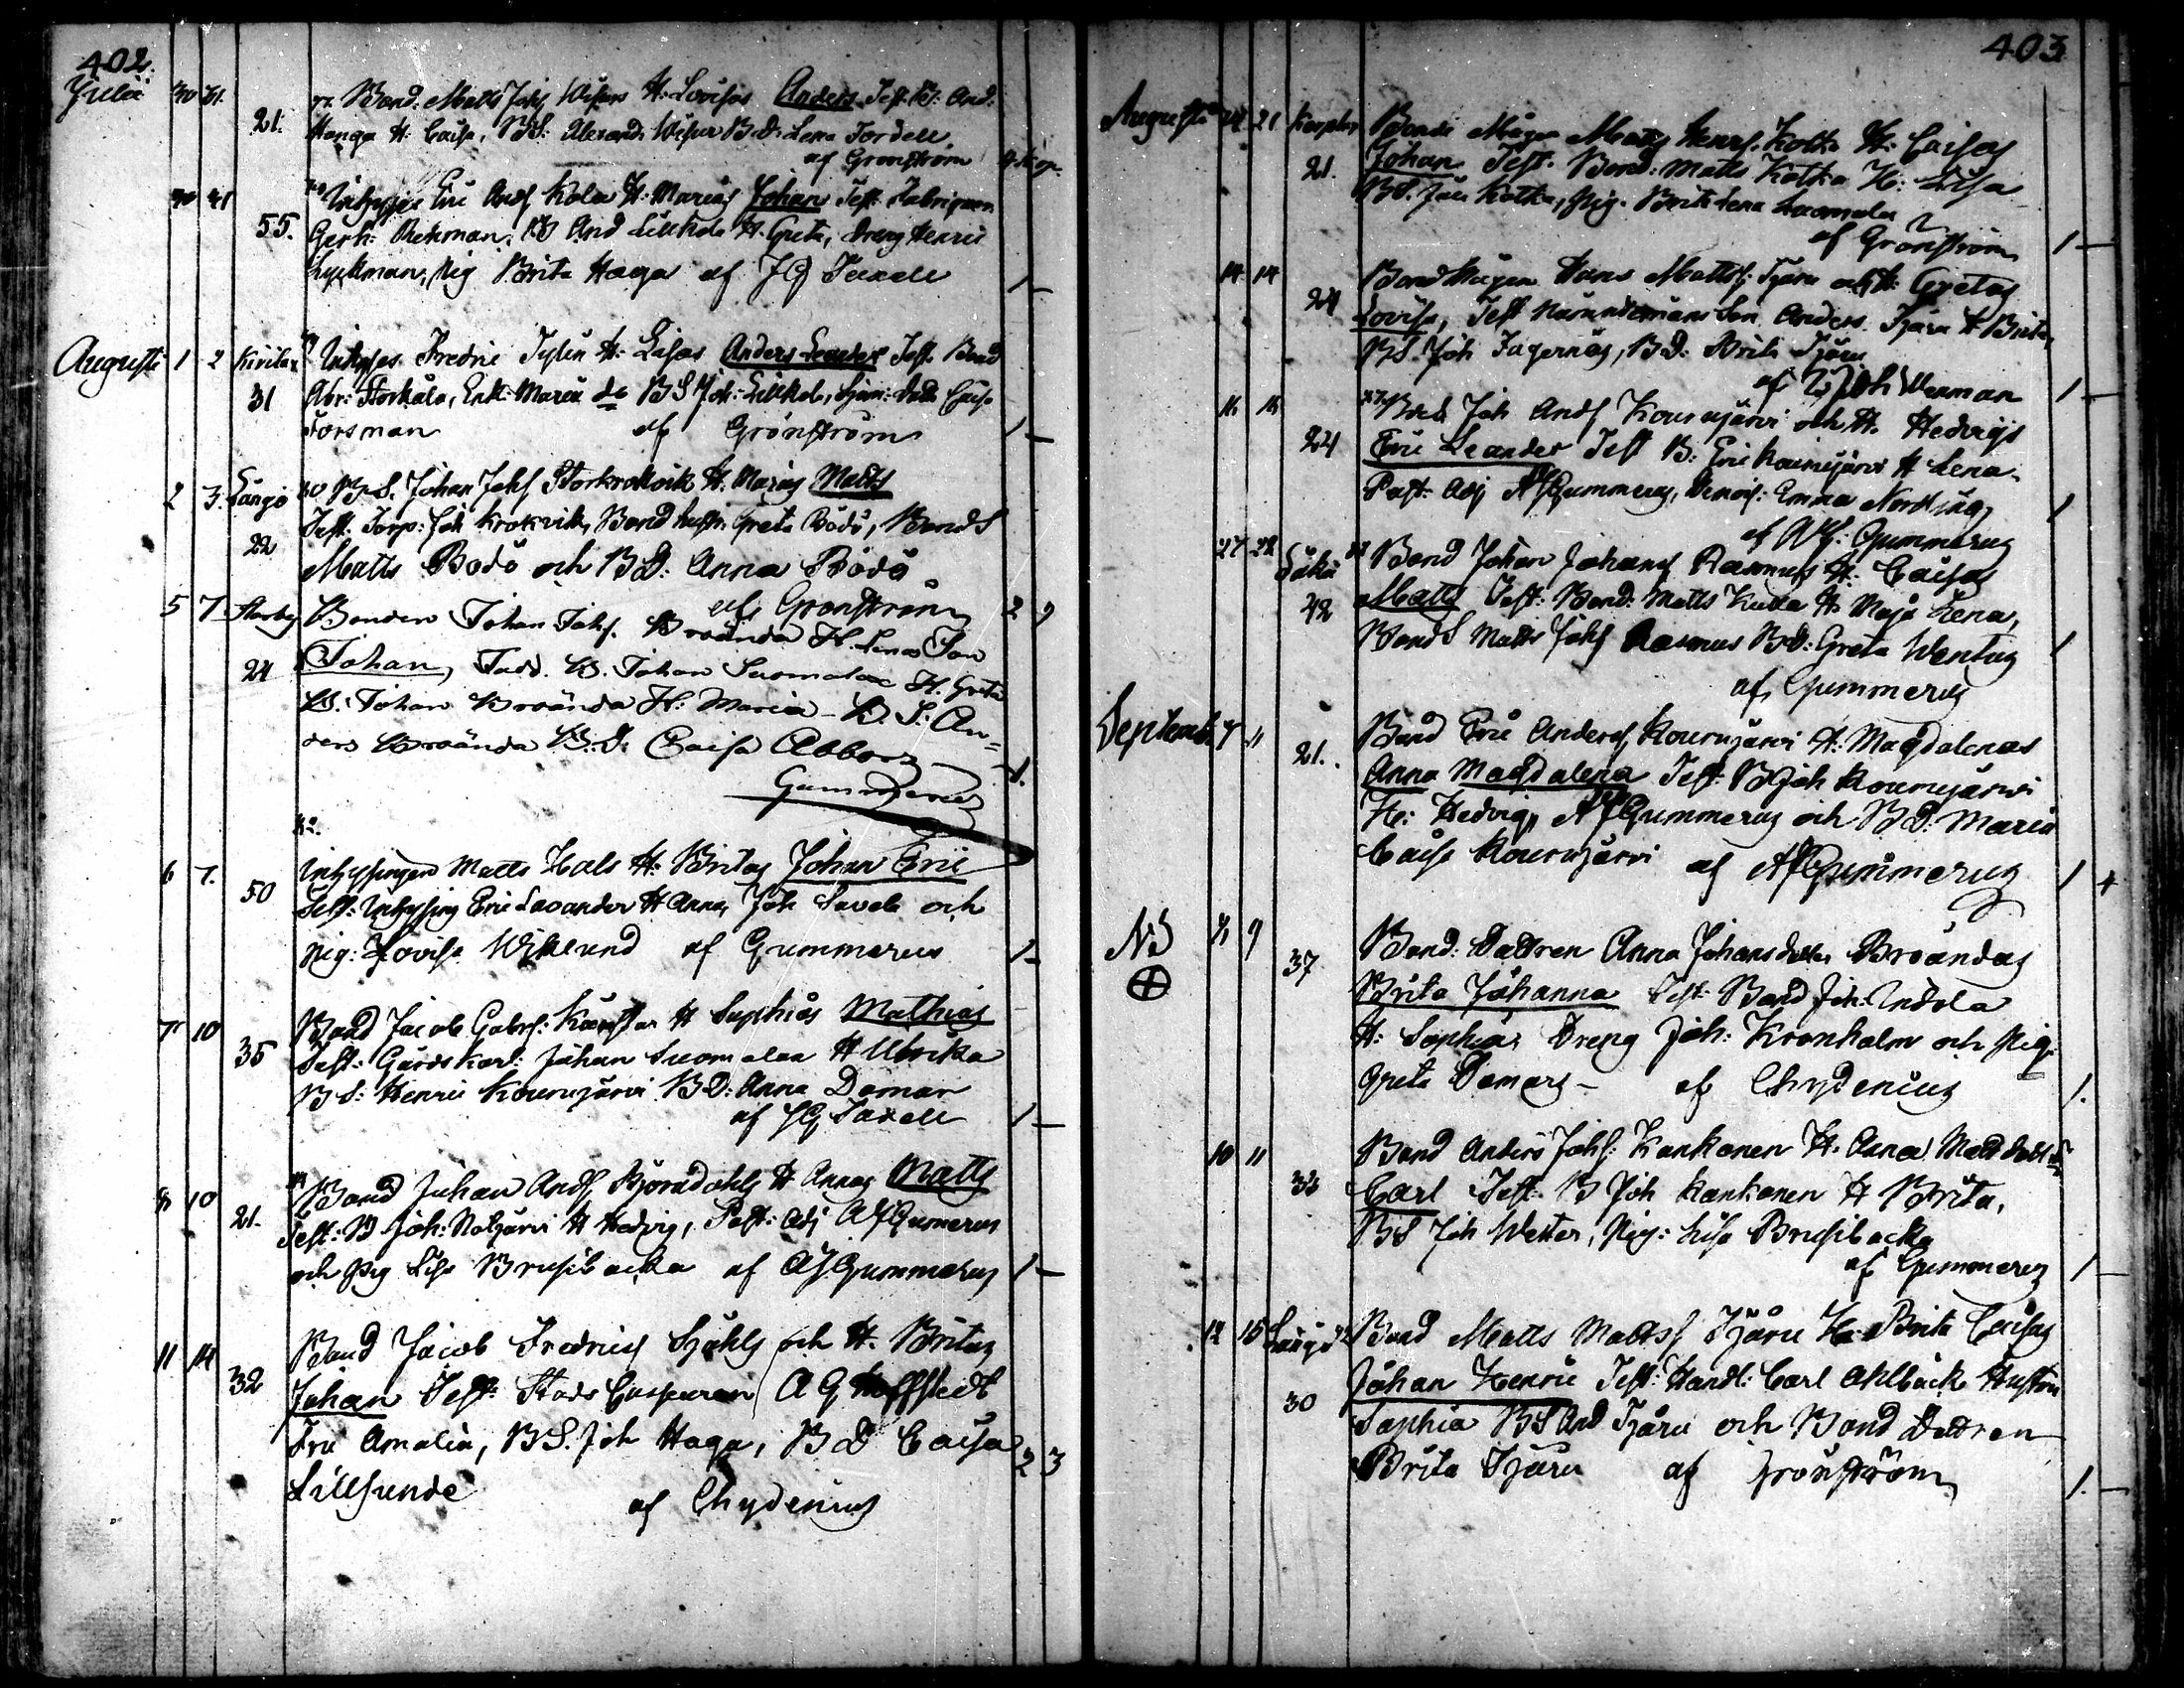 402.
Julii 30 31. Bond. Matts Johs Wisurs H. Lovisas Anders Test. B. And.
21. Hanga H. Caisa, BS: Alexand: Wisur B.D: Lena Tordell
af Grönström
30 31 Inhyses Eric Ands Kola H: Marias Johan Test. Fabriqueur
55. Gerh: Rehman, B And Lillkola H. Greta, Dreng Henric
Lyckman, Pig Brita Haga af JG Taxell 1 —
Augusti 1 2 Inhyses Fredric Tylin H: Lisas Anders Leander Test. Bond
31 Abr: Storkåla, Enk: Maria do BS Joh: Lillkola, Caisa
Forsman af Grönström 1 —
2 3. Långö B.S. Johan Johs Storkrokvik H. Marias Matts
Test: Torp: Joh Krokvik, Bond hust. Greta Bodö, BondS
22 Matts Bodö och BD: Anna Bodö
af Grönström 2 9
5 7 Storby Bonden Johan Johs. Broända H. Lenas Son
24 Johan, Fadd. B. Johan Suomalax H. Greta
B. Johan Broända H: Maria — B. S: An=
ders Broända B.D. Caisa Abbors 1.
Gummerus
6 7. Inhysingen Matts Hals H. Britas Johan Eric
50 Test: Inhysing Eric Lavander H Anna, Joh Savela och
Pig: Lovisa Wiklund af Gummerus 1 —
7 10 Bond Jacob Gabrs: H Sophias Mathias
35 Test: Gårdskarl: Johan Suomalax H Ulrika
BS: Henric Kourujärvi BD: Anna Domar
af JG Taxell 1 —
8 10 Bond Johan Ands Björndahls H Annas Matts
21. Test: B Joh: Noljärvi H Hedvig, Past: Adj AJGummerus
och Pig Lisa Brusibacka af AJGummerus 1 —
11 14 Bond Jacob Fredrics Sjöhls och H. Britas
32 Johan Test: Stads Cassueren A G Hoffstedt
Fru Amalia, BS. Joh Haga, BD Caisa 2 3
Lillsunde af Chydenius
403
Augusti 21 Bonde Mågen Matts Henrs. Kotka H. Caisas
21. Johan Test. Bond: Matts Kotka H: Lisa
BS. Jac Kotka, Pig. Brita Lena Suomalax
af Grönström 1 —
14 14 Bond Mågen Hans Matts: Tjäru och H: Gretas
24 Lovisa, Test Nämndemans Son Anders Tjäru H Brita,
BS. Joh Jagernäs, BD: Brita Tjäru
af Joh Weman 1 —
16 Bond Joh Ands Kourujärvi och H. Hedvigs
24 Eric Leander Test B: Eric Kourujärvi H Lena
Past: Adj AJGummerus, Demois: Emma Nordling
af AJ: Gummerus 1
22 Såka Bond Johan Johans Rasmus H. Caisas
42 Matts Test: Bond: Matts Kulla H Maja Lena,
BondS Matts Johs Rasmus BD: Greta Wentus 1
af Gummerus
Septemb. 7 11 Bond Eric Anders Kourujärvi H: Magdalenas
21. Anna Magdalena Test: B Joh Kourujärvi
H: Hedvig, AJGummerus och BD: Maria
Caisa Kourujärvi af AJGummerus 1 4
NB 9 Bond: Dottren Anna Johansdotter Broändas
37. Brita Johanna Test: Bond Joh: Indola
H: Sophia, Dreng Joh: Kronholm och Pig:
Greta Domars — af Chydenius 1.
10 11 Bond Anders Johs: Kankonen H. Anna
32 Carl Test: B Joh Kankonen H Brita,
BS Joh Wetter, Pig: Lisa Brusibacka
af Gummerus 1 —
12 15 Långö Bond Matts Matts Tjäru H: Brita Caisas
30 Johan Henric Test: Handl: Carl Ahlbäck Hustru
Sophia BS And Tjäru och Bond Dottren
Brita Tjäru af Grönström 1. —